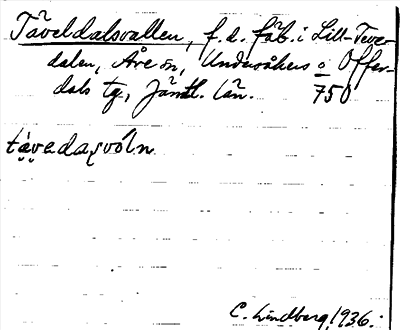 Täveldalsvallen, f.d. fäb. i Lill-Teve-
dalen, Åre sn, Undersåkers o Offer-
dals tg, Jämtl. län. 750
tävedaʂvóln
C. Lindberg 1936.